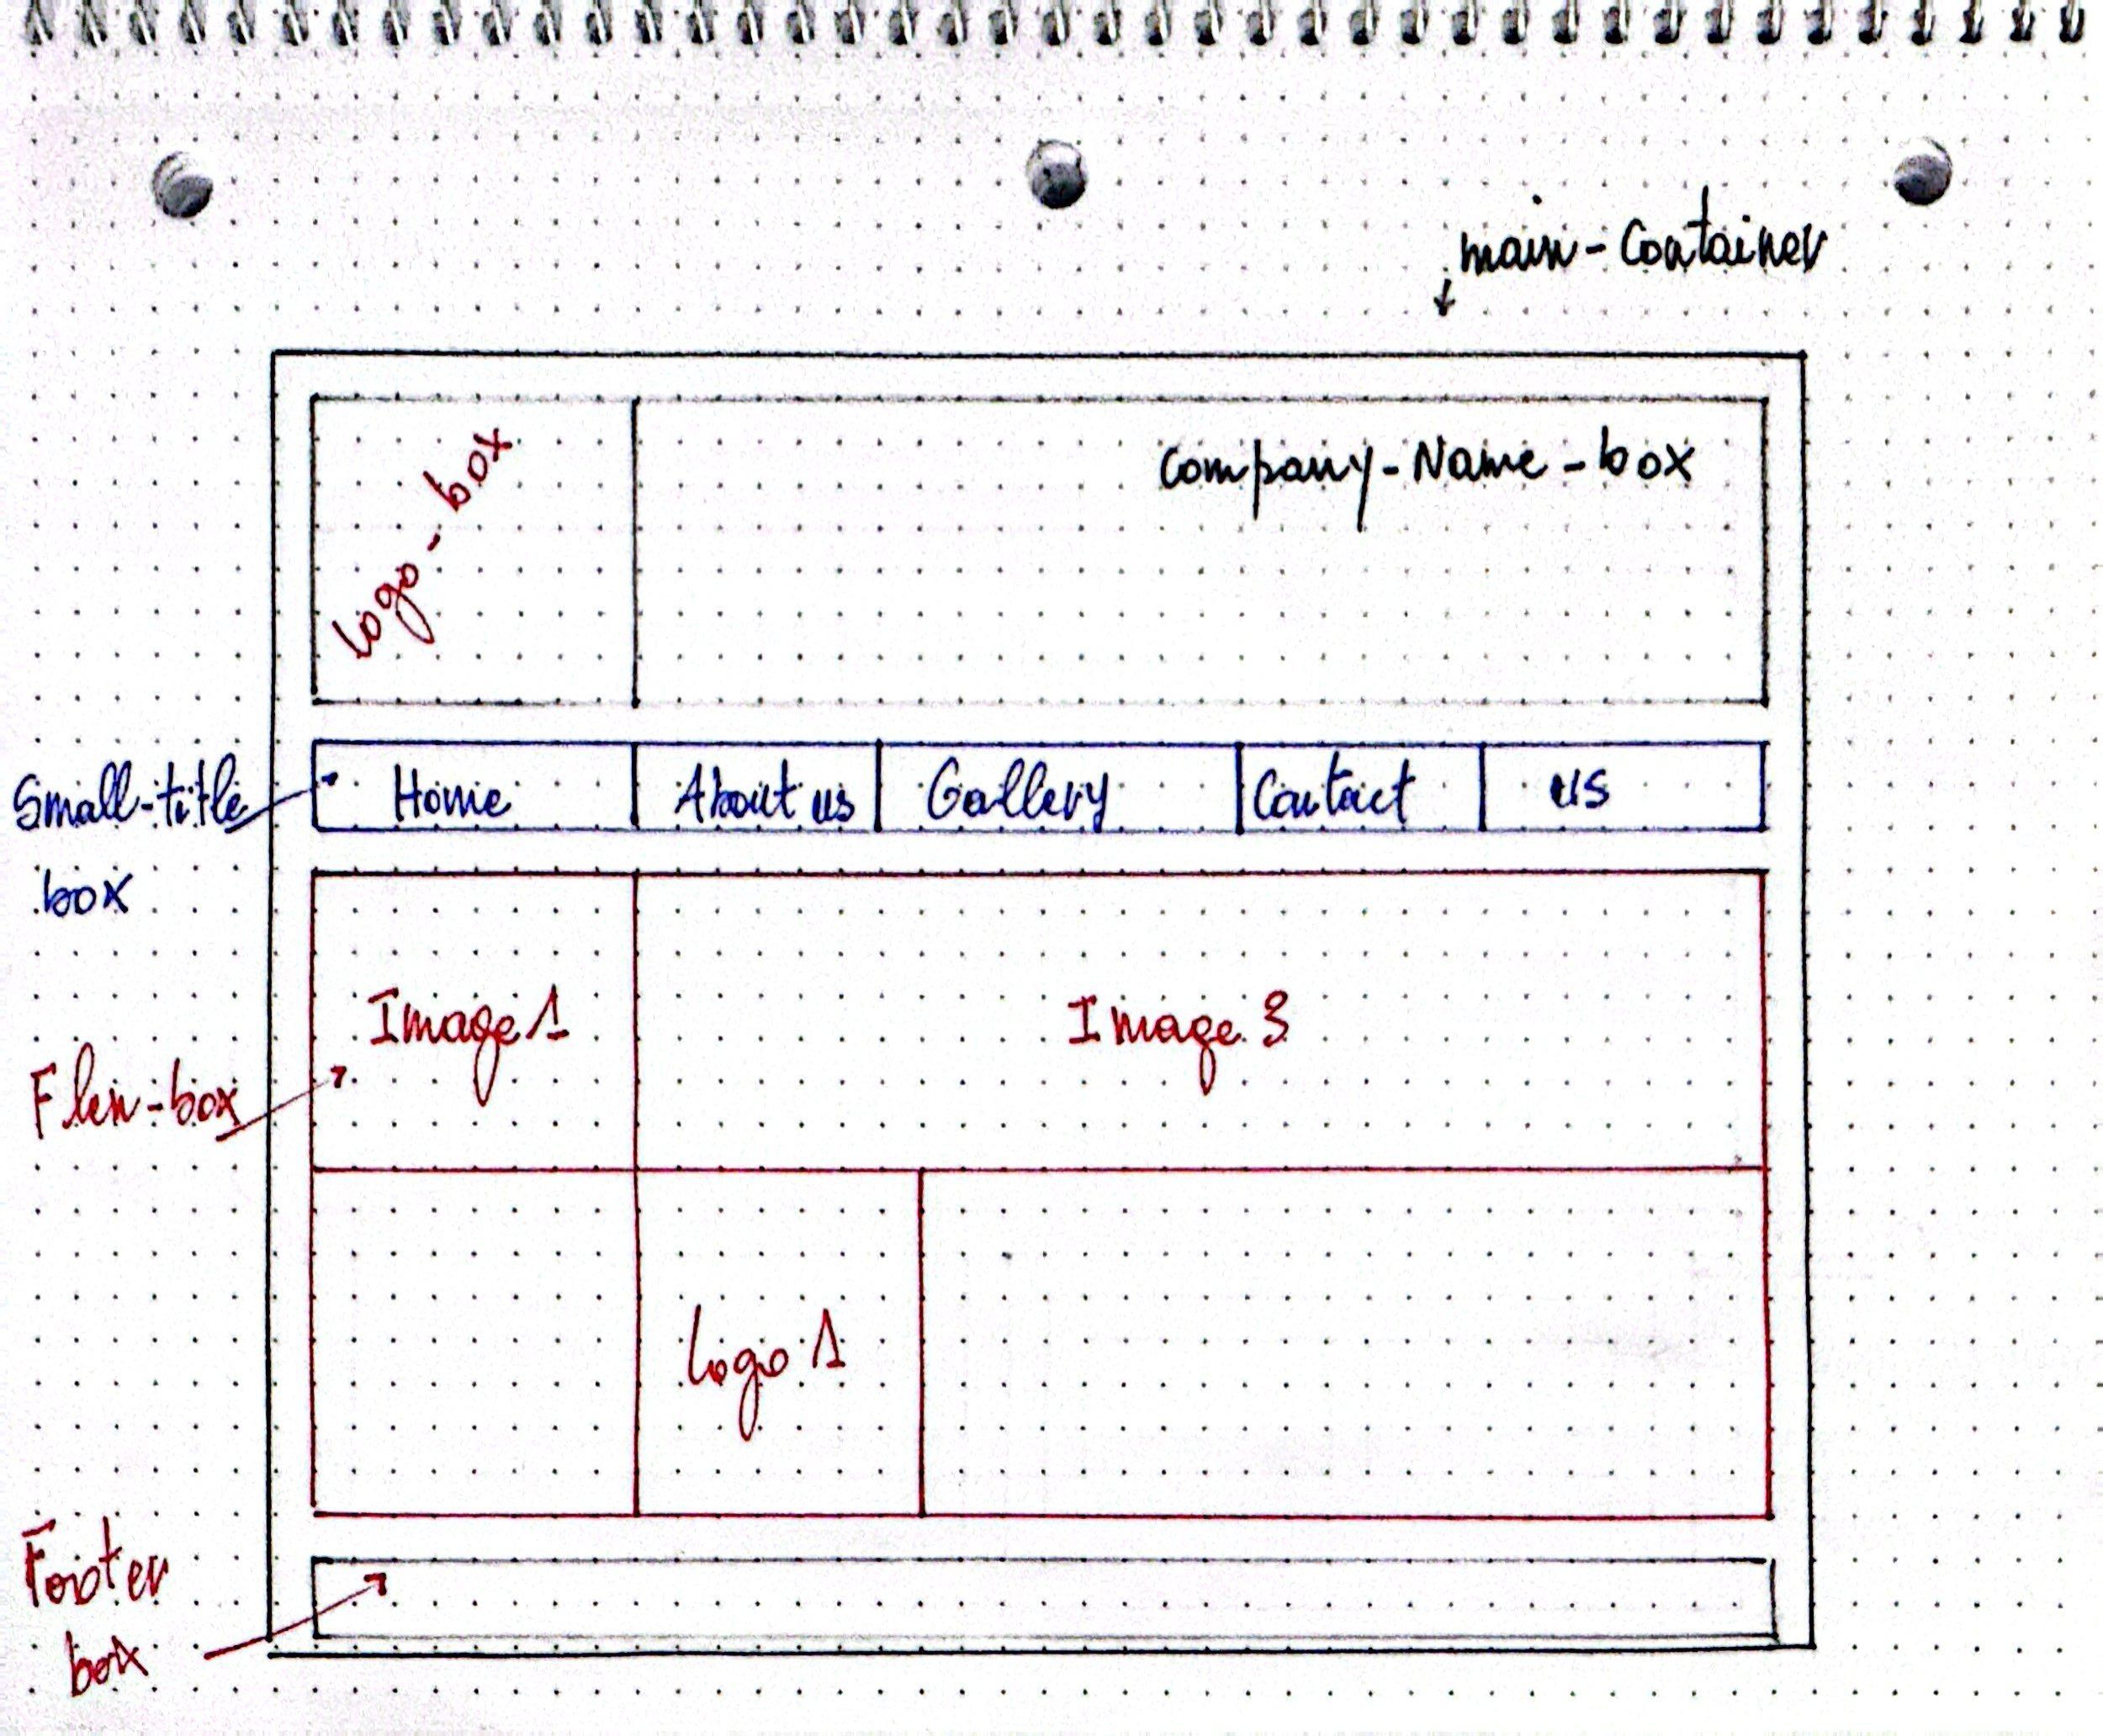 main-Container
logo-box
Company-Name-box
Small-title
box
Home
About us
Gallery
Contact
us
Image 1
Image 3
Flex-box
Logo 1
Footer
box